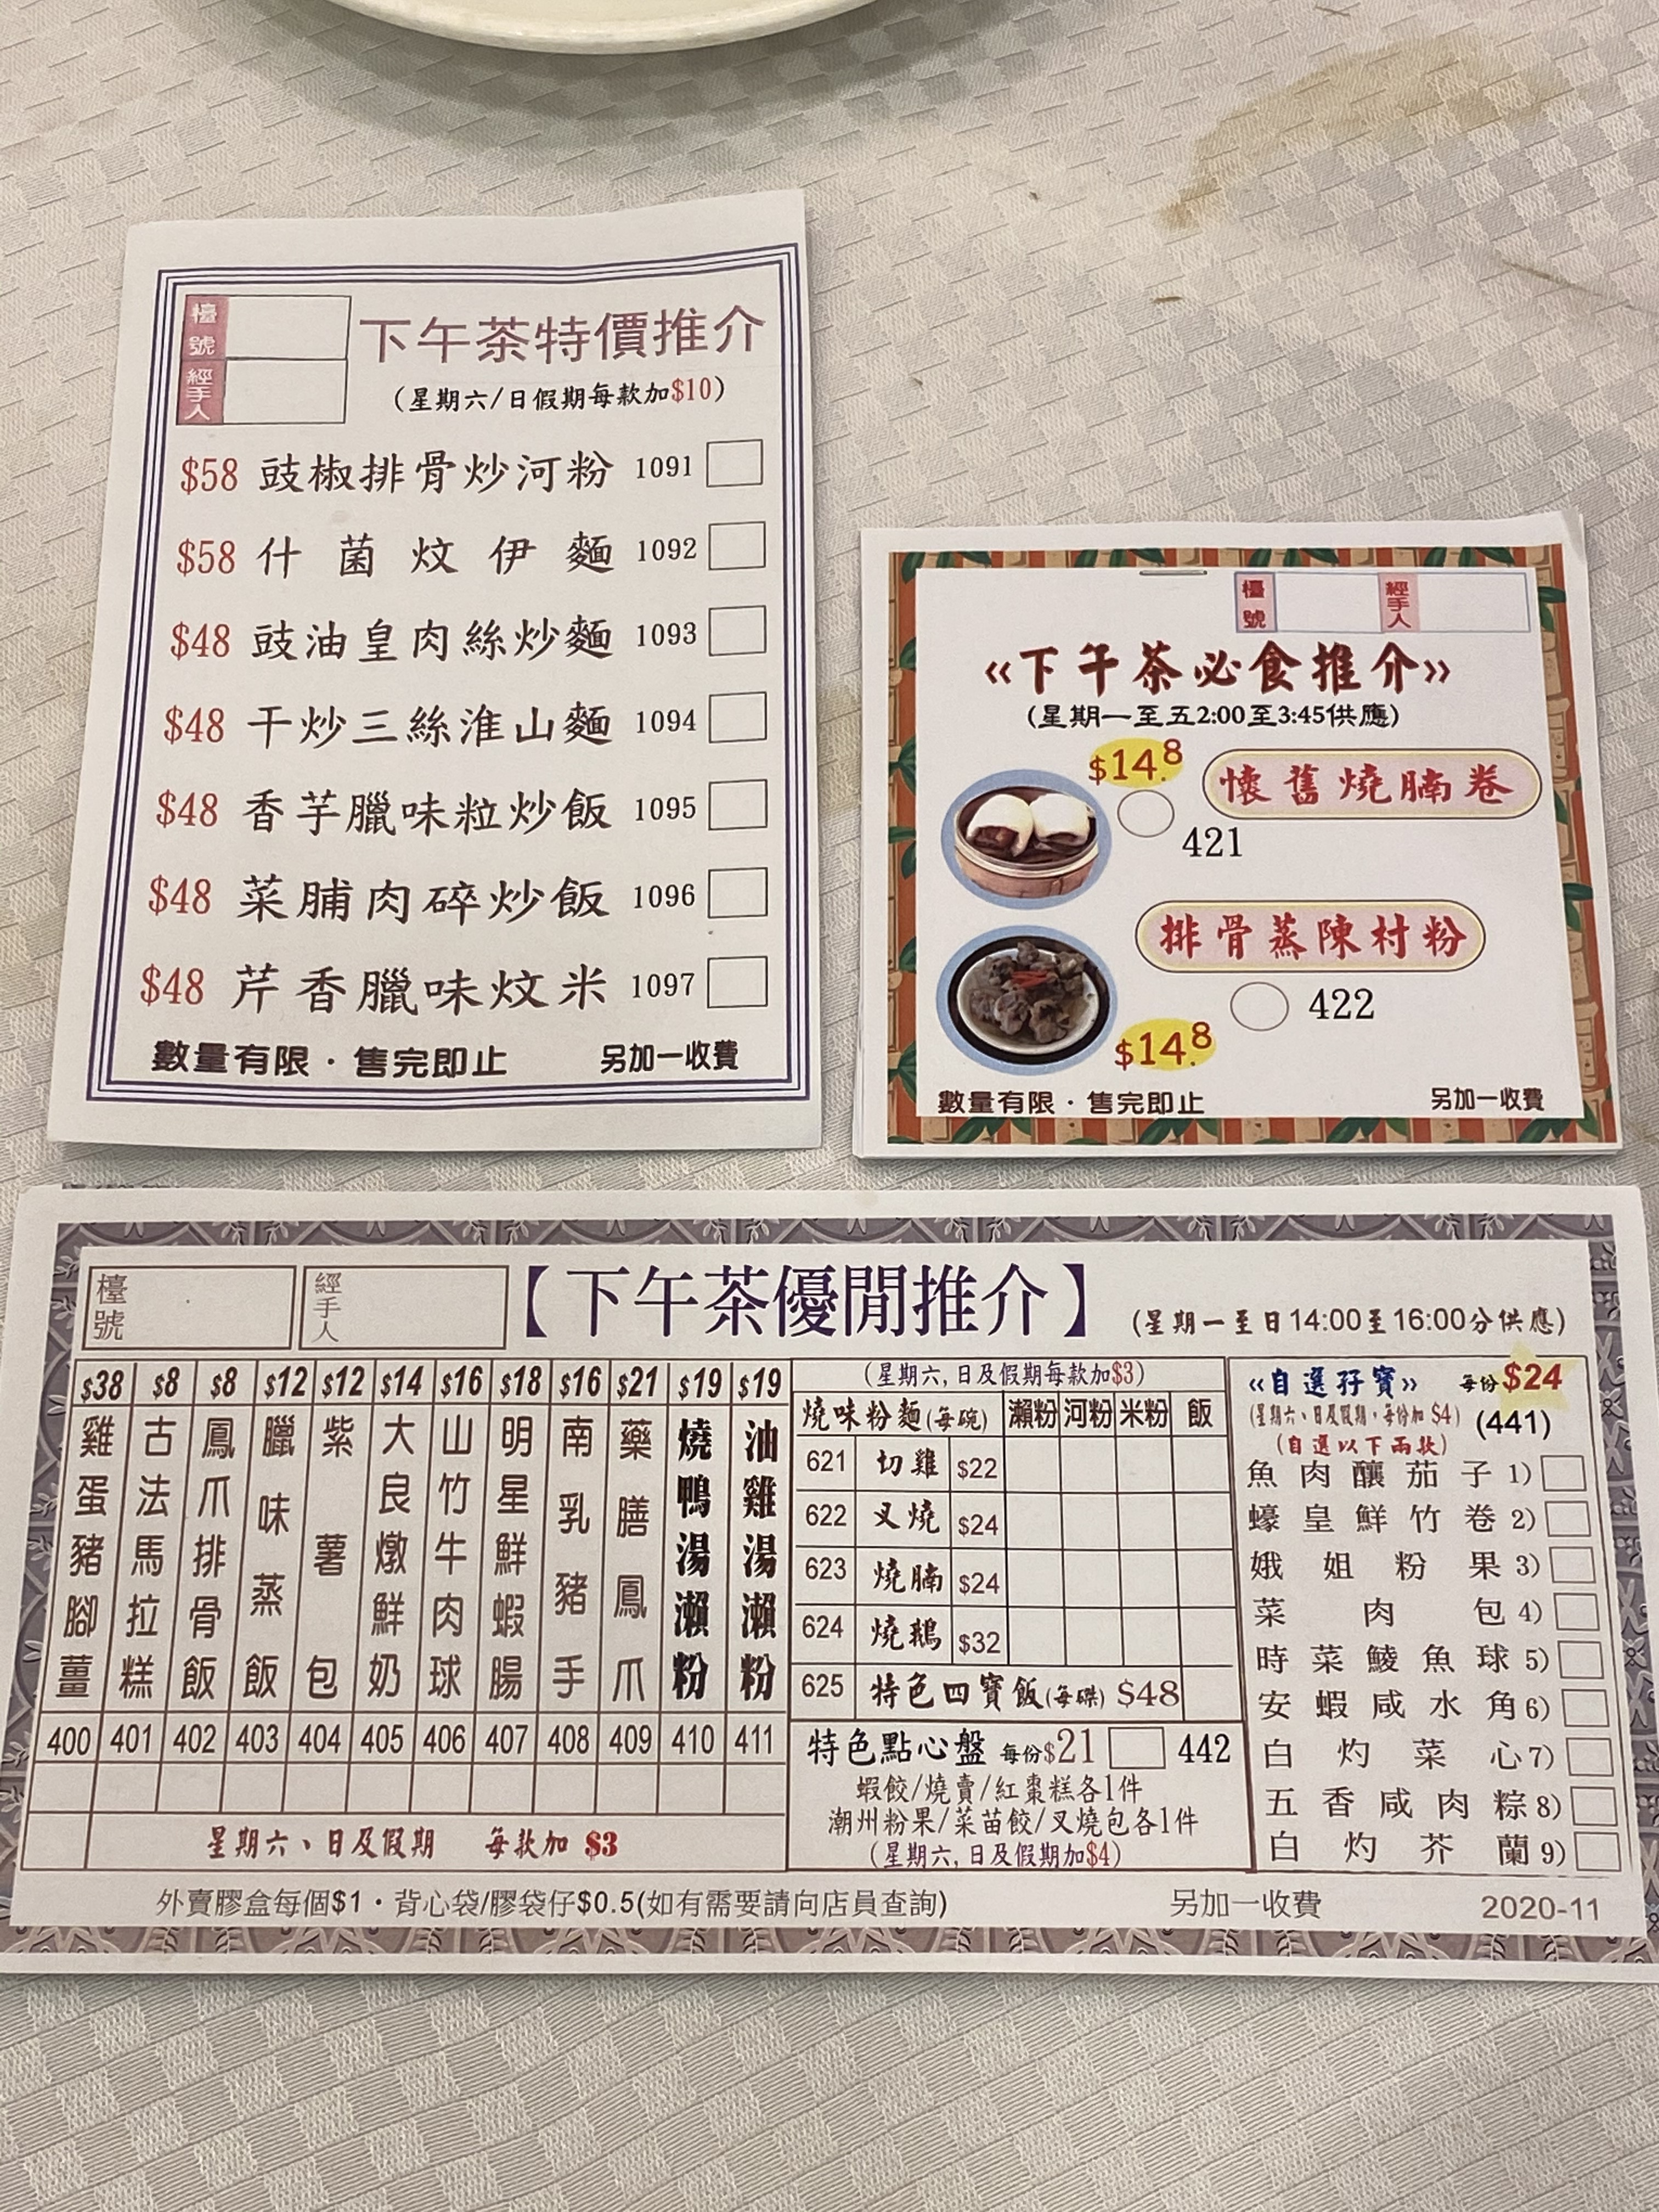 檯號
經手人
下午茶特價推介
(星期六/日假期每款加$10)
$58 豉椒排骨炒河粉 1091
$58 什菌炆伊麵 1092
$48 豉油皇肉絲炒麵 1093
$48 干炒三絲淮山麵 1094
$48 香芋臘味粒炒飯 1095
$48 菜脯肉碎炒飯 1096
$48 芹香臘味炆米 1097
數量有限・售完即止 另加一收費
檯號 經手人
《下午茶必食推介》
(星期一至五2:00至3:45供應)
$14.8 懷舊燒腩卷
421
排骨蒸陳村粉
422
$14.8
數量有限・售完即止 另加一收費
檯號 經手人
【下午茶優閒推介】 (星期一至日14:00至16:00分供應)
$38 雞蛋豬腳薑 400
$8 古法馬拉糕 401
$8 鳳爪排骨飯 402
$12 臘味蒸飯 403
$12 紫薯包 404
$14 大良燉鮮奶 405
$16 山竹牛肉球 406
$18 明星鮮蝦腸 407
$16 南乳豬手 408
$21 藥膳鳳爪 409
$19 燒鴨湯瀨粉 410
$19 油雞湯瀨粉 411
星期六、日及假期 每款加 $3
(星期六,日及假期每款加$3)
燒味粉麵(每碗) 瀨粉 河粉 米粉 飯
621 切雞 $22
622 叉燒 $24
623 燒腩 $24
624 燒鵝 $32
625 特色四寶飯(每碟) $48
特色點心盤 每份$21 442
蝦餃/燒賣/紅棗糕各1件
潮州粉果/菜苗餃/叉燒包各1件
(星期六,日及假期加$4)
《自選孖寶》 每份$24
(星期六、日及假期,每份加 $4) (441)
(自選以下兩款)
魚肉釀茄子 1)
蠔皇鮮竹卷 2)
娥姐粉果 3)
菜肉包 4)
時菜鯪魚球 5)
安蝦咸水角 6)
白灼菜心 7)
五香咸肉粽 8)
白灼芥蘭 9)
外賣膠盒每個$1・背心袋/膠袋仔$0.5(如有需要請向店員查詢) 另加一收費 2020-11